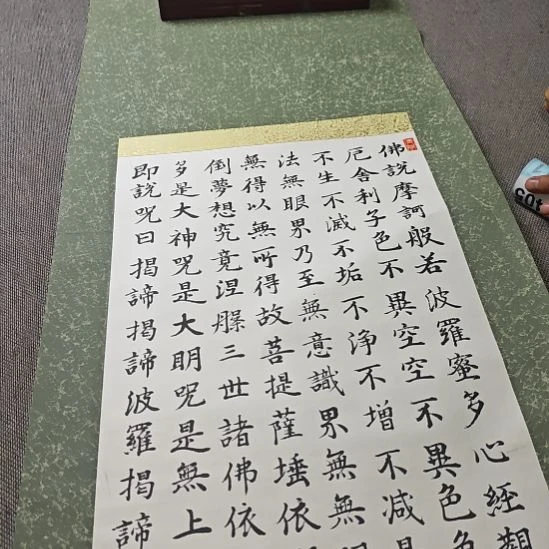 佛說摩訶般若波羅蜜多心經觀
厄舍利子色不異空空不異色色
不生不滅不垢不淨不增不減是
法無眼界乃至無意識界無無
無得以無所得故菩提薩埵依
倒夢想究竟涅槃三世諸佛依
多是大神咒是大明咒是無上
即說咒曰揭諦揭諦波羅揭諦
105